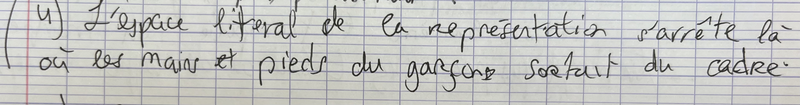 4) L'espace litteral de la representation s'arrête là
où les mains et pieds du garçons sortait du cadre.